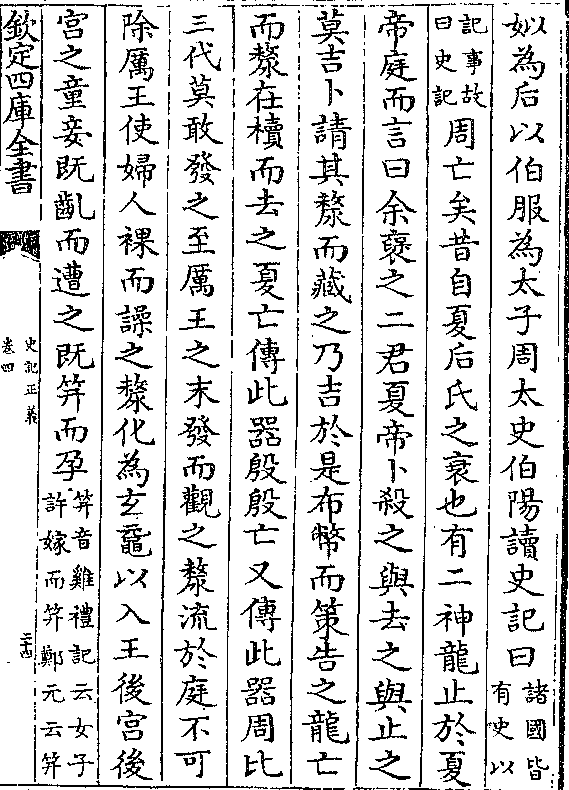 姒為后以伯服為太子周太史伯陽讀史記曰諸國皆有史以
記事故曰史記周亡矣昔自夏后氏之衰也有二神龍止於夏
帝庭而言曰余襃之二君夏帝卜殺之與去之與止之
莫吉卜請其漦而藏之乃吉於是布幣而策告之龍亡
而漦在櫝而去之夏亡傳此器殷殷亡又傳此器周比
三代莫敢發之至厲王之末發而觀之漦流於庭不可
除厲王使婦人裸而譟之漦化為玄黿以入王後宮後
宮之童妾既齓而遭之既笄而孕笄音雞禮記云女子許嫁而笄鄭元云笄
欽定四庫全書
史記正義
卷四
二十四